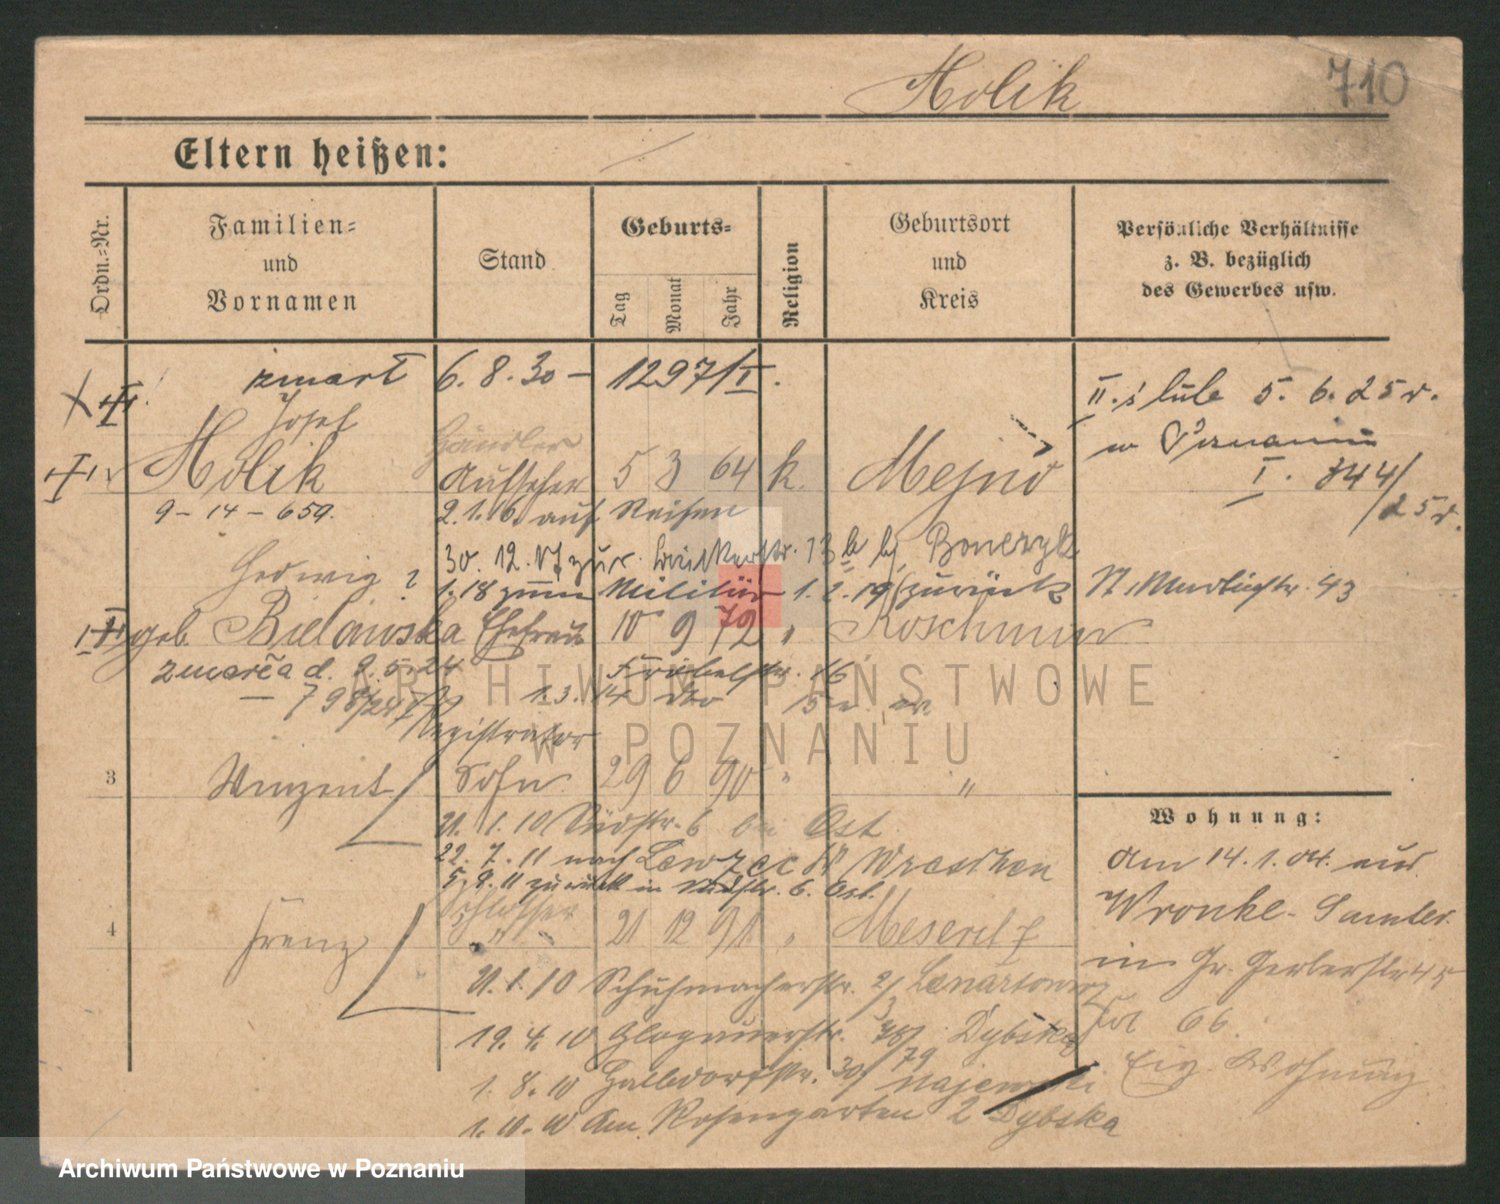 Holik 710
Eltern heißen:
Ordn.-Nr.
Familien-
und
Vornamen
Stand
Geburts-
Tag
Monat
Jahr
Religion
Geburtsort
und
Kreis
Persönliche Verhältnisse
z. B. bezüglich
des Gewerbes usw.
zmarł 6. 8. 30 – 1297/I.
II. ślub 5. 6. 25 r.
w Poznaniu
I. 344/
25 r.
Josef
Händler
Holik Aufseher 5 3 64 k. Mejno
9 – 14 – 659. 2. 1. 6. auf Reisen
30. 12. 17 zur. 13 b b/
Hedwig ? 1. 18 zum Militär 1. 2. 19 zurück
43
geb. Bielawska Ehefrau 10 9 72 " Koschmin
zmarła d. 9. 5. 24 Fröbelstr. 16
1. 3. 14 dto
Registrator
3 Vinzent Sohn 29 6 90 " "
21. 1. 10 Südstr. 6 bei Ost
22. 7. 11 nach Wreschen
5. 9. 11 zurück in Südstr. 6. Ost.
Schlosser
4 Franz " 21 12 91 "
21. 1. 10 Schuhmacherstr. 2/3
19. 4. 10 Glogauerstr. Dybska
1. 8. 10 30/ Majewski
1. 10. 10 Am Rosengarten 2 Dybska
Wohnung:
Am 14. 1. 04. aus
Wronke - Samter
in Gr. Gerberstr. 45
66.
Eig. Wohnung
ARCHIWUM PAŃSTWOWE
W POZNANIU
Archiwum Państwowe w Poznaniu